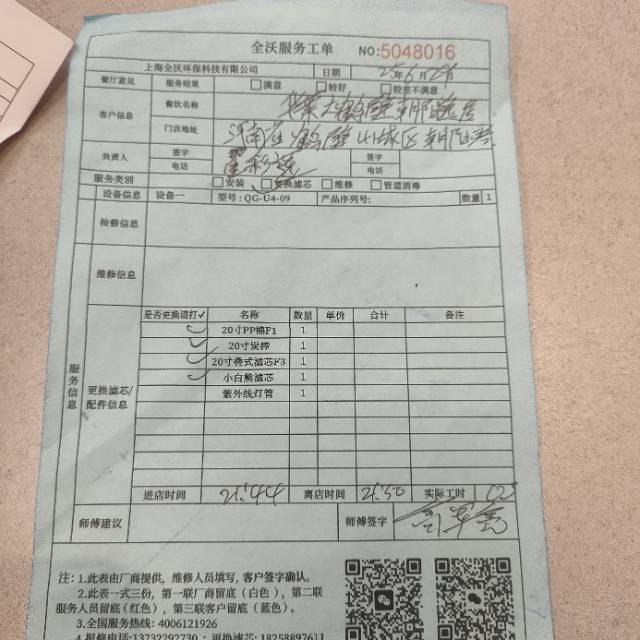 全沃服务工单 NO:5048016
上海全沃环保科技有限公司 日期 25年6月29日
餐厅意见 服务结果 满意 较好 较差不满意
客户信息 餐饮名称
门店地址 河南省鹤壁山城区朝阳
负责人 签字 签字
电话 电话
服务类别 安装 更换滤芯 维修 管道消毒
设备信息 设备一 型号:QG-U4-09 产品序列号: 数量 1
检修信息
维修信息
服务信息
更换滤芯/配件信息
是否更换请打✓ 名称 数量 单价 合计 备注
✓ 20寸PP棉F1 1
✓ 20寸炭棒 1
✓ 20寸叠式滤芯F3 1
✓ 小白熊滤芯 1
紫外线灯管 1
进店时间 21:44 离店时间 21:50 实际工时
师傅建议 师傅签字
注: 1.此表由厂商提供,维修人员填写,客户签字确认。
2.此表一式三份,第一联厂商留底(白色),第二联
服务人员留底(红色),第三联客户留底(蓝色)。
3.全国服务热线: 4006121926
4.报修电话:13732292730 ;更换滤芯: 18258897611